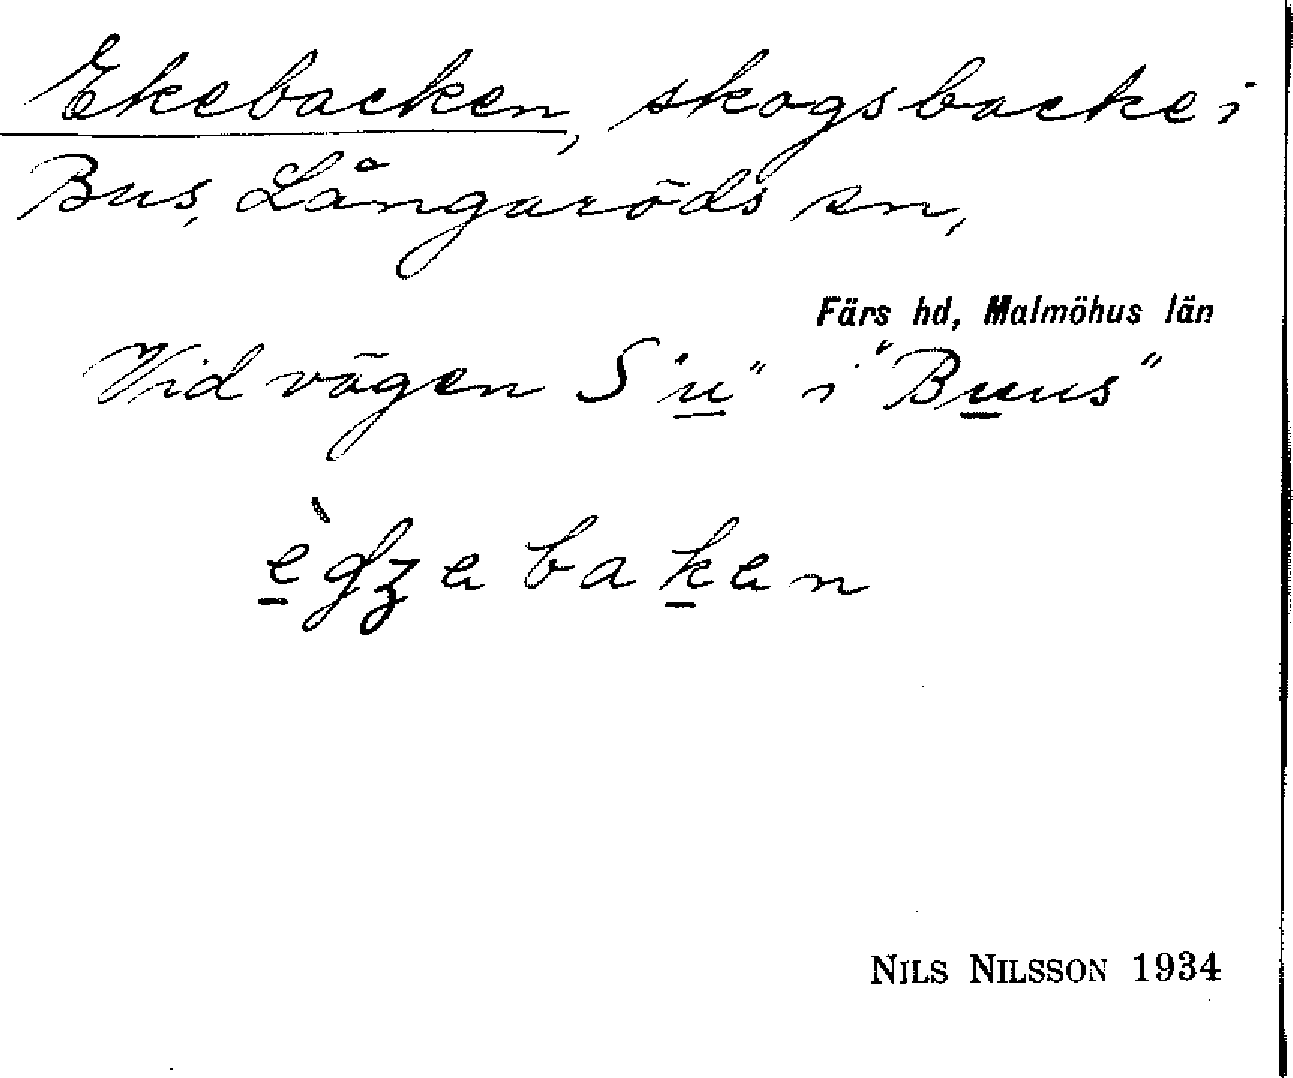 Ekebacken, skogsbacke i
Bus, Långaröds sn,
Färs hd, Malmöhus län
Vid vägen S "u" i "Buus"
NILS NILSSON 1934